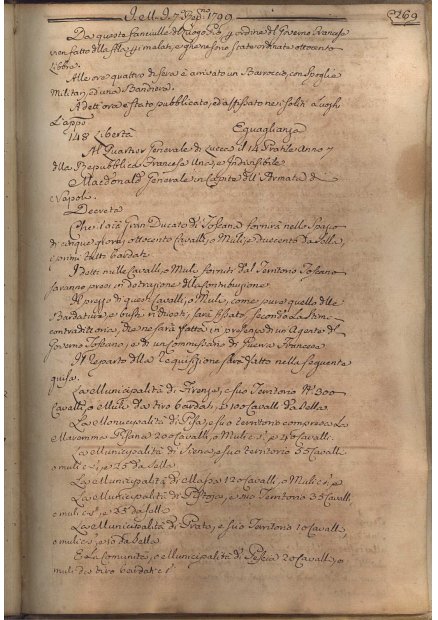 1799
269
Da queste fanciulle del Luogo Pio per ordine del Governo Francese
vien fatto
malati, e ghene sono state ordinate ottocento
Libbre.
Alle ore quattro di sera è arrivato un Barroccio, con Spoglie
Militari, ed una Bandiera.
A dett'ora è stato pubblicato, ed affissato nei soliti luoghi
L'appo
148 Libertà Eguaglianza
Al Quartier Generale di Lucca il 14 Pratile Anno 7
della Repubblica Francese Una, e Indivisibile
Macdonald Generale in Capite dell'Armata di
Napoli.
Decreta
Che il già Gran Ducato di Toscana fornirà nello Spazio
di cinque giorni ottocento Cavalli, o Muli, e duecento da Sella,
i primi tutti bardati.
I detti mille Cavalli, o Muli forniti dal Territorio Toscano
saranno presi in detrazione della contribuzione.
Il prezzo di questi Cavalli, o Muli, come pure quello delle
Bardature, e busti ridicoti, sarà fissato, secondo la Stima
contradittoria, che ne sarà fatta in presenza di un Agente del
Governo Toscano, e di un Commissario di Guerra Francese
Il Reparto della Requisizione sarà fatto nella seguente
guisa.
La Municipalità di Firenze, e suo Territorio N.º 300
Cavalli, o Muli da tiro bardati, e 100 Cavalli da Sella.
La Municipalità di Pisa, e suo territorio compresa La
Maremma Pisana 200 Cavalli, o Muli c.s., e 50 Cavalli.
La Municipalità di Siena, e suo territorio 55 Cavalli
o muli c.s., e 25 da Sella
La Municipalità di Massa 120 Cavalli, o Muli c.s., e
La Municipalità di Pistoja, e suo Territorio 35 Cavalli
o muli c.s., e 25 da Sella
La Municipalità di Prato, e suo Territorio 10 Cavalli,
o muli c.s., e 10 da Sella.
E La Comunità, o Municipalità di Pescia 20 Cavalli, o
muli da tiro bardati c.s.